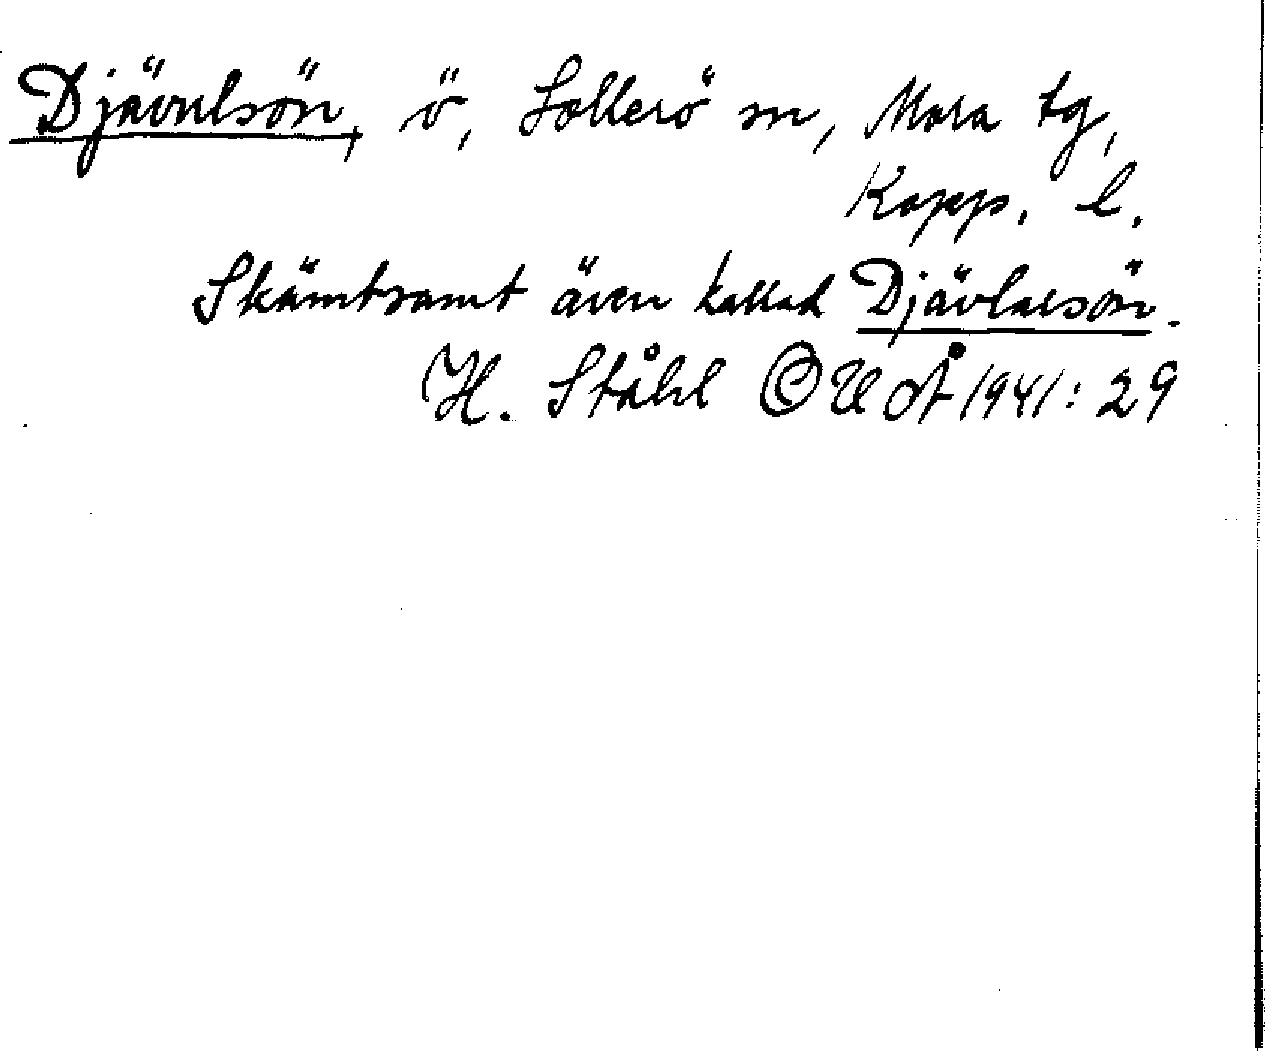 Djävulsön, ö, Sollerö sn, Mora tg,
Kopp. l.
Skämtsamt även kallad Djävlarsön.
H. Ståhl OUÅ 1941: 29